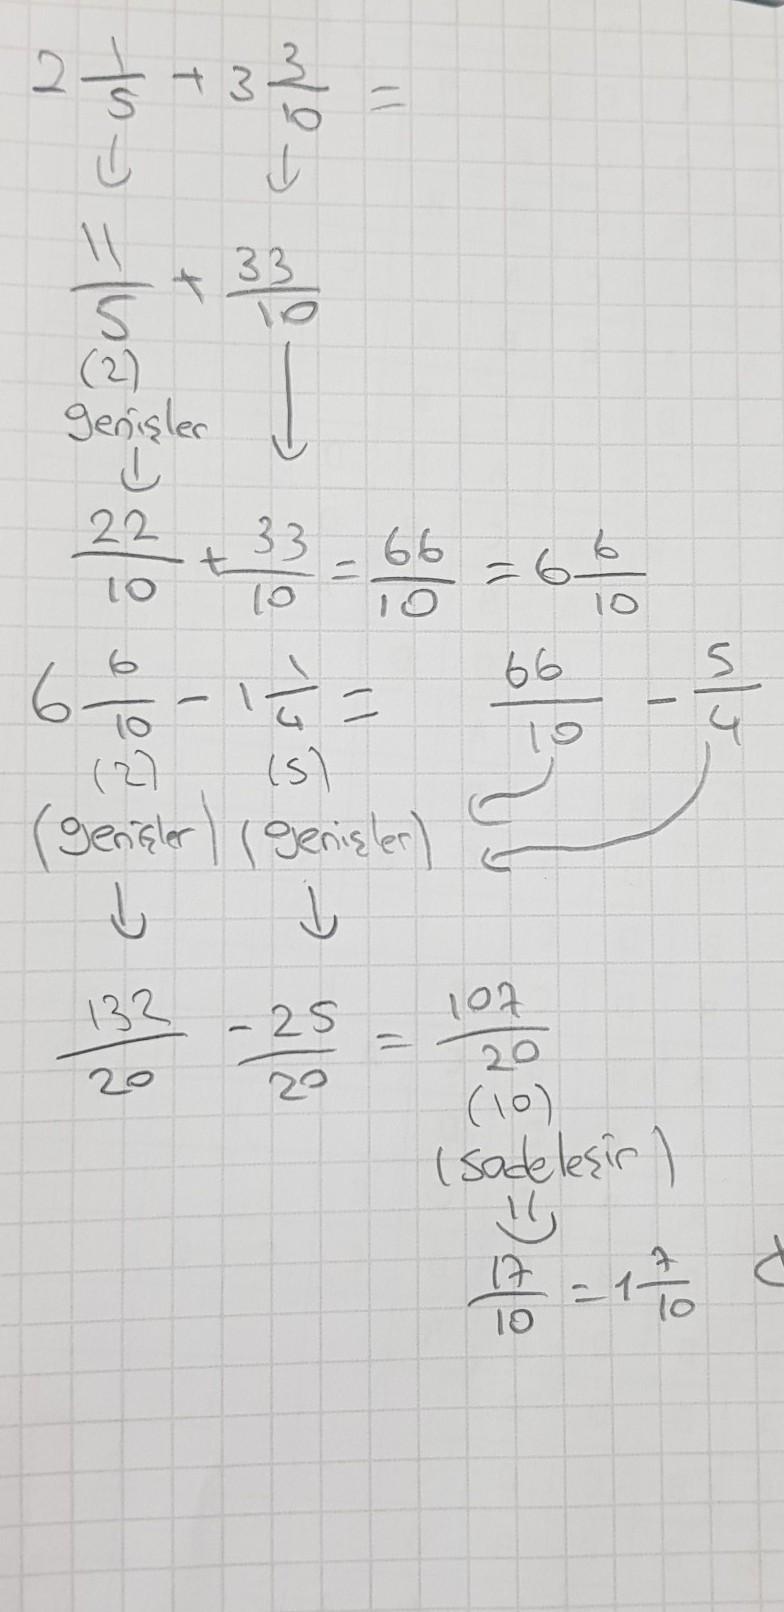 2 1/5 + 3 3/10 =
↓ ↓
11/5 + 33/10
(2)
genişler
↓ ↓
22/10 + 33/10 = 66/10 = 6 6/10
6 6/10 - 1 1/4 = 66/10 - 5/4
(2) (5)
(genişler) (genişler)
↓ ↓
132/20 - 25/20 = 107/20
(10)
(sadeleşir)
⇓
17/10 = 1 7/10